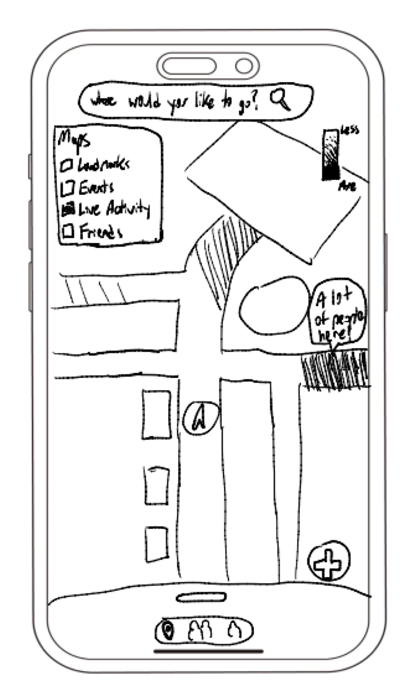 where would you like to go?
Less
Maps
Landmarks
Events
Live Activity
Friends
A lot
of people
here!